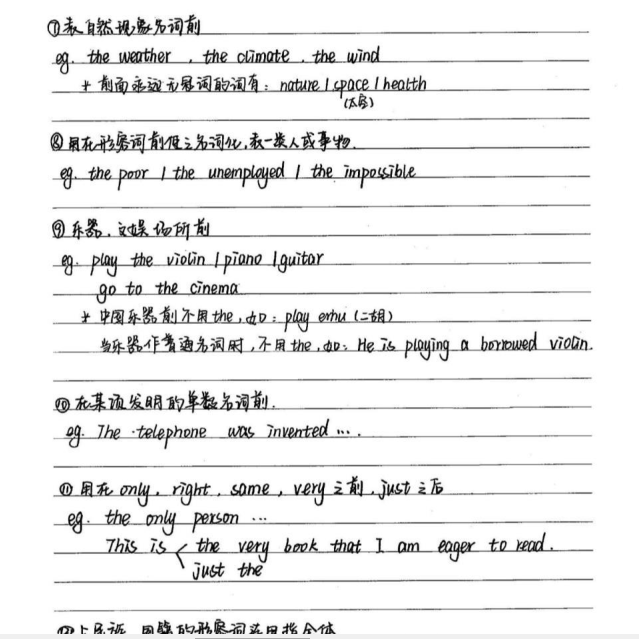 ⑦表自然现象名词前
eg. the weather , the climate , the wind
* 前面永远无冠词的词有：nature / space / health
(太空)
⑧用在形容词前使之名词化,表一类人或事物.
eg. the poor / the unemployed / the impossible
⑨乐器、文娱场所前
eg. play the violin / piano / guitar
go to the cinema
* 中国乐器前不用the,如：play erhu (二胡)
当乐器作普通名词时,不用the,如：He is playing a borrowed violin.
⑩在某项发明的单数名词前.
eg. The telephone was invented ….
⑪用在 only, right, same, very 之前, just 之后
eg. the only person …
This is < the very book that I am eager to read.
just the